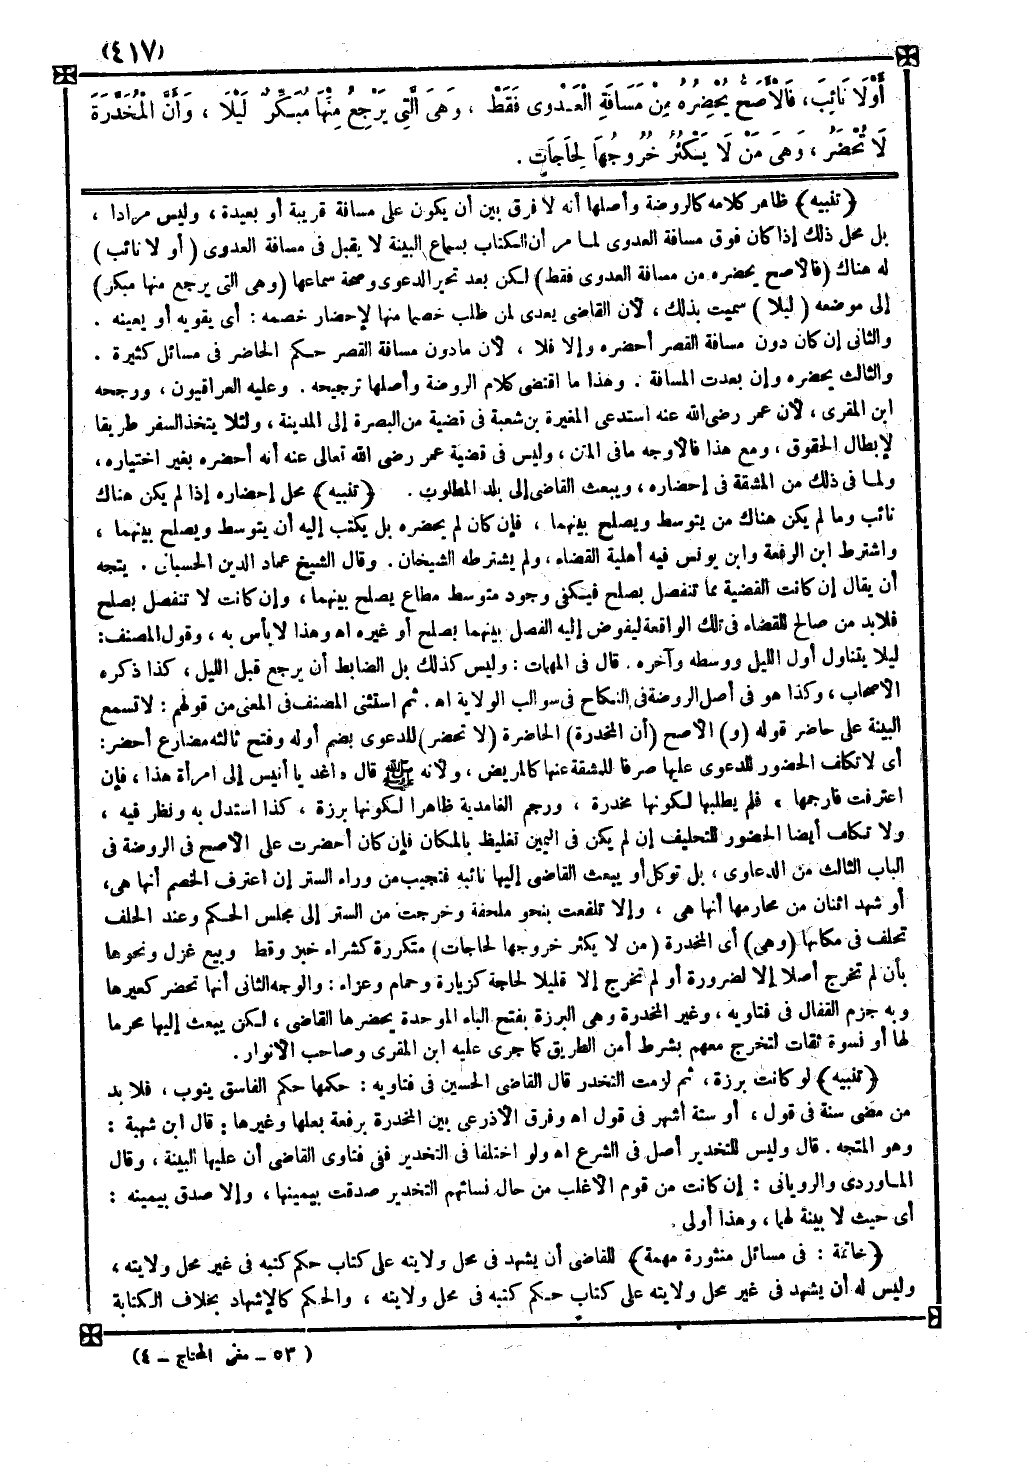 (٤١٧)
أَوْ لَا نَائِبَ، فَالْأَصَحُّ يُحْضِرُهُ مِنْ مَسَافَةِ الْعَدْوَى فَقَطْ ، وَهِيَ الَّتِي يَرْجِعُ مِنْهَا مُبَكِّرٌ لَيْلًا ، وَأَنَّ الْمُخَدَّرَةَ
لَا تُحْضَرُ ، وَهِيَ مَنْ لَا يَكْثُرُ خُرُوجُهَا لِحَاجَاتٍ .
﴿تنبيه﴾ ظاهر كلامه كالروضة وأصلها أنه لا فرق بين أن يكون على مسافة قريبة أو بعيدة ، وليس مرادا ،
بل محل ذلك إذا كان فوق مسافة العدوى لما مر أن الكتاب بسماع البينة لا يقبل فى مسافة العدوى ( أو لا نائب )
له هناك (فالأصح يحضره من مسافة العدوى فقط) لكن بعد تحرير الدعوى وصحة سماعها (وهى التى يرجع منها مبكر)
إلى موضعه ( ليلا ) سميت بذلك ، لأن القاضى يعدى لمن طلب خصما منها لإحضار خصمه : أى يقويه أو يعينه .
والثانى إن كان دون مسافة القصر أحضره وإلا فلا ، لأن مادون مسافة القصر حكم الحاضر فى مسائل كثيرة .
والثالث يحضره وإن بعدت المسافة . وهذا ما اقتضى كلام الروضة وأصلها ترجيحه . وعليه العراقيون ، ورجحه
ابن المقرى ، لأن عمر رضى الله عنه استدعى المغيرة بن شعبة فى قضية من البصرة إلى المدينة ، ولئلا يتخذ السفر طريقا
لإبطال الحقوق ، ومع هذا فالأوجه مافى المتن ، وليس فى قضية عمر رضى الله تعالى عنه أنه أحضره بغير اختياره ،
ولما فى ذلك من المشقة فى إحضاره ، ويبعث القاضى إلى بلد المطلوب . ﴿تنبيه﴾ محل إحضاره إذا لم يكن هناك
نائب وما لم يكن هناك من يتوسط ويصلح بينهما ، فإن كان لم يحضره بل يكتب إليه أن يتوسط ويصلح بينهما ،
واشترط ابن الرفعة وابن يونس فيه أهلية القضاء ، ولم يشترطه الشيخان . وقال الشيخ عماد الدين الحسبانى . يتجه
أن يقال إن كانت القضية مما تنفصل بصلح فيكفى وجود متوسط مطاع يصلح بينهما ، وإن كانت لا تنفصل بصلح
فلابد من صالح للقضاء فى تلك الواقعة ليفوض إليه الفصل بينهما بصلح أو غيره اه وهذا لابأس به ، وقول المصنف:
ليلا يتناول أول الليل ووسطه وآخره . قال فى المهمات : وليس كذلك بل الضابط أن يرجع قبل الليل ، كذا ذكره
الأصحاب ، وكذا هو فى أصل الروضة فى النكاح فى سوالب الولاية اه . ثم استثنى المصنف فى المعنى من قولهم : لاتسمع
البينة على حاضر قوله (و) الأصح (أن المخدرة) الحاضرة (لا تحضر) للدعوى بضم أوله وفتح ثالثه مضارع أحضر:
أى لا تكلف الحضور للدعوى عليها صرفا للمشقة عنها كالمريض ، ولأنه ﷺ قال « اغد يا أنيس إلى امرأة هذا ، فإن
اعترفت فارجمها » فلم يطلبها لكونها مخدرة ، ورجم الغامدية ظاهرا لكونها برزة ، كذا استدل به ونظر فيه ،
ولا تكلف أيضا الحضور للتحليف إن لم يكن فى اليمين تغليظ بالمكان فإن كان أحضرت على الأصح فى الروضة فى
الباب الثالث من الدعاوى ، بل توكل أو يبعث القاضى إليها نائبه فتجيب من وراء الستر إن اعترف الخصم أنها هى،
أو شهد اثنان من محارمها أنها هى ، وإلا تلفعت بنحو ملحفة وخرجت من الستر إلى مجلس الحكم وعند الحلف
تحلف فى مكانها (وهى) أى المخدرة (من لا يكثر خروجها لحاجات) متكررة كشراء خبز وقط وبيع غزل ونحوها
بأن لم تخرج أصلا إلا لضرورة أو لم تخرج إلا قليلا لحاجة كزيارة وحمام وعزاء : والوجه الثانى أنها تحضر كغيرها
وبه جزم القفال فى فتاويه ، وغير المخدرة وهى البرزة بفتح الباء الموحدة يحضرها القاضى ، لكن يبعث إليها محرما
لها أو نسوة ثقات لتخرج معهم بشرط أمن الطريق كما جرى عليه ابن المقرى وصاحب الأنوار .
﴿تنبيه﴾ لو كانت برزة ، ثم لزمت التخدر قال القاضى الحسين فى فتاويه : حكمها حكم الفاسق يتوب ، فلا بد
من مضى سنة فى قول ، أو ستة أشهر فى قول اه وفرق الأذرعى بين المخدرة برفعة بعلها وغيرها : قال ابن شهبة :
وهو المتجه . قال وليس للتخدير أصل فى الشرع اه ولو اختلفا فى التخدير ففى فتاوى القاضى أن عليها البينة ، وقال
الماوردى والرويانى : إن كانت من قوم الأغلب من حال نسائهم التخدير صدقت بيمينها ، وإلا صدق بيمينه :
أى حيث لا بينة لهما ، وهذا أولى .
﴿خاتمة : فى مسائل منثورة مهمة﴾ للقاضى أن يشهد فى محل ولايته على كتاب حكم كتبه فى غير محل ولايته ،
وليس له أن يشهد فى غير محل ولايته على كتاب حكم كتبه فى محل ولايته ، والحكم كالإشهاد بخلاف الكتابة
( ٥٣ - مغنى المحتاج - ٤)